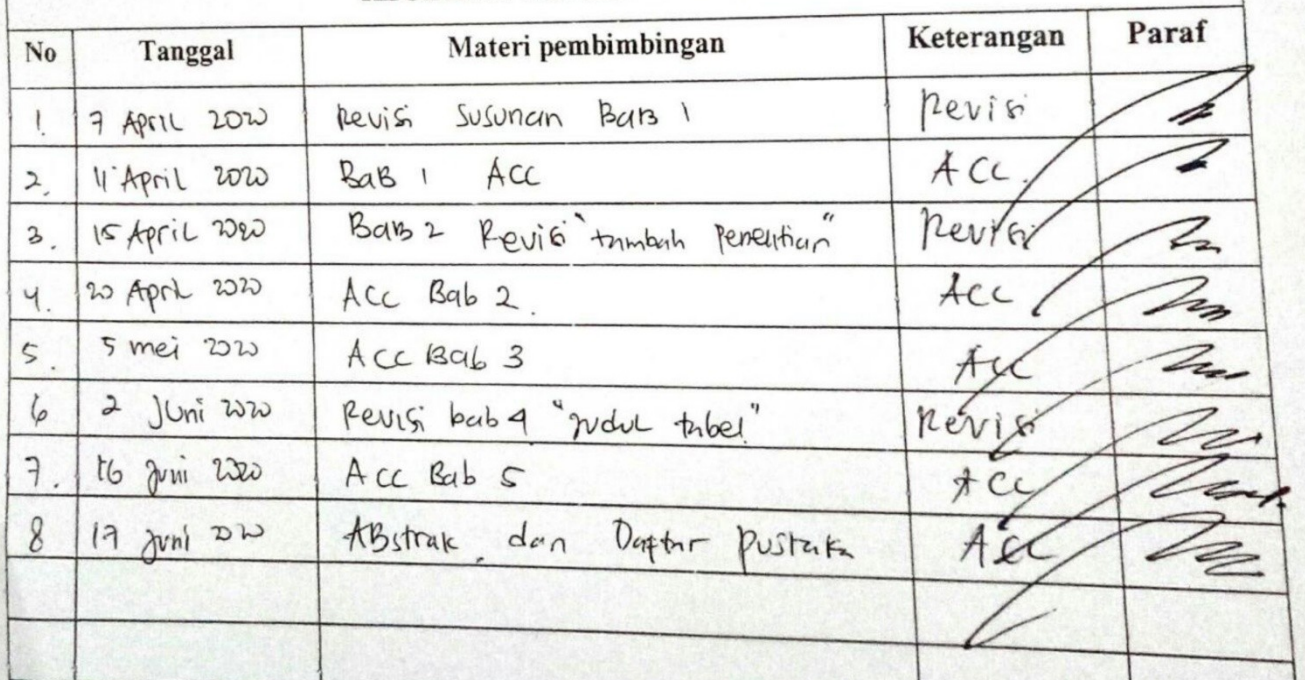 No Tanggal Materi pembimbingan Keterangan Paraf
1. 7 April 2020 Revisi Susunan Bab 1 Revisi
2. 11 April 2020 Bab 1 ACC ACC.
3. 15 April 2020 Bab 2 Revisi "tambah Penelitian" Revisi
4. 20 April 2020 ACC Bab 2. ACC
5. 5 mei 2020 ACC Bab 3 ACC
6 2 Juni 2020 Revisi bab 4 "judul tabel" Revisi
7. 16 Juni 2020 Acc Bab 5 ACC
8 17 Juni 2020 ABstrak dan Daftar pustaka ACC